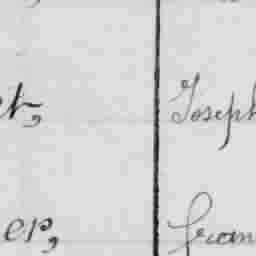 et, Joseph
er, Fran